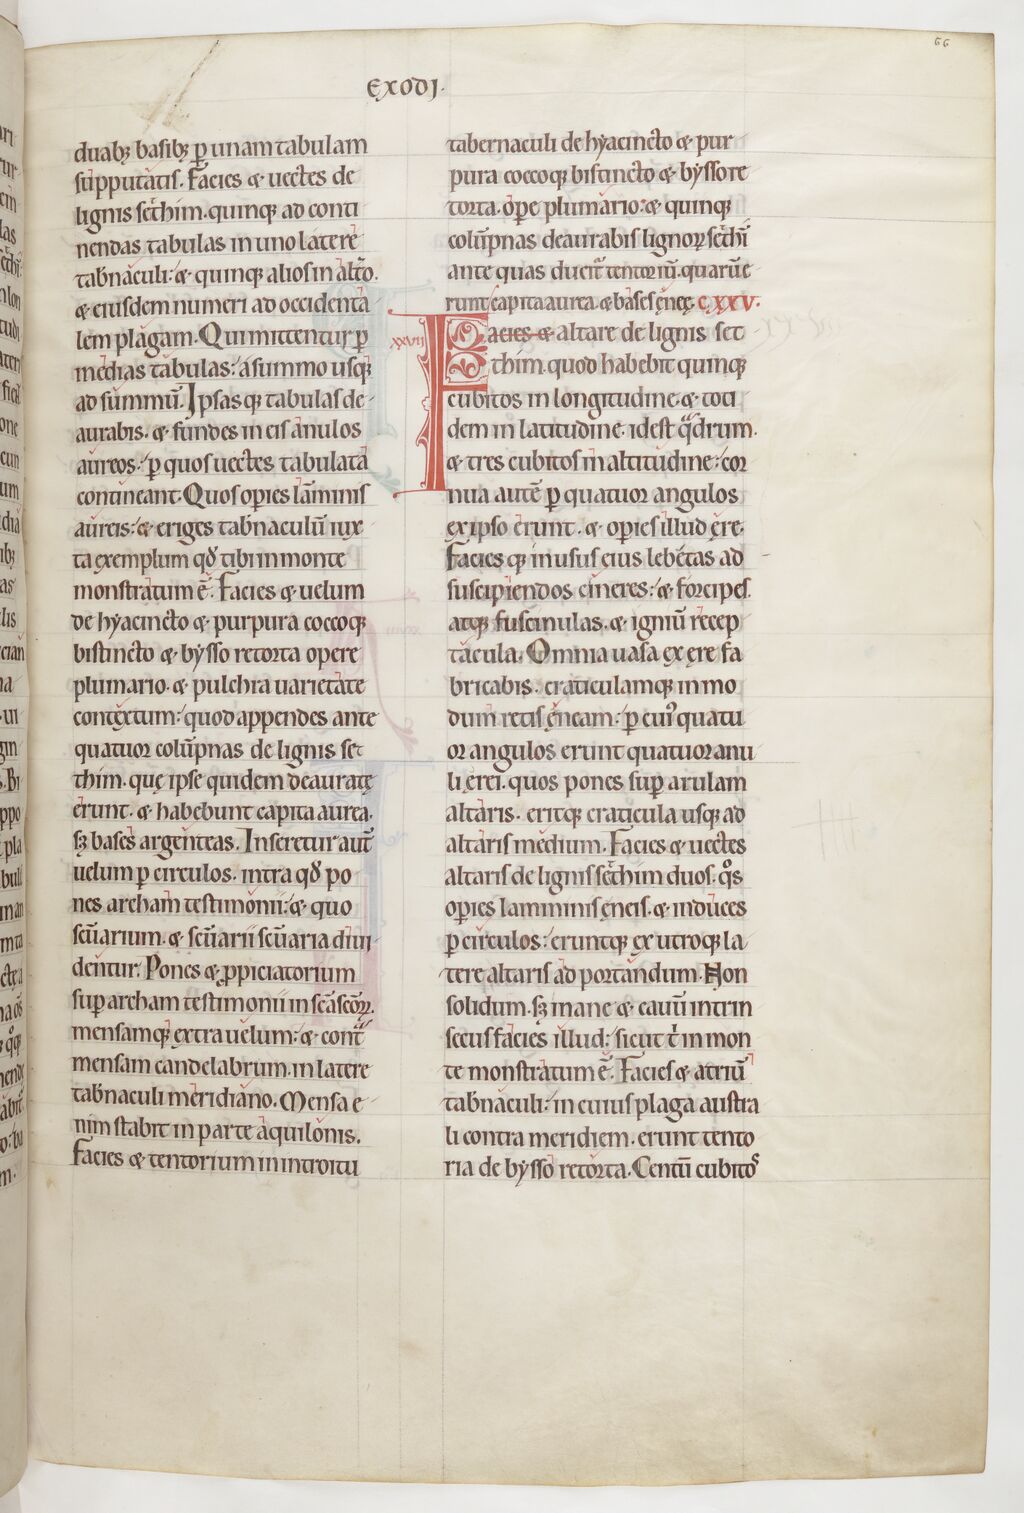 66
EXODI.
duabꝫ basibꝫ ꝑ unam tabulam
supputatis. Facies & uectes de
lignis sethim. quinqꝫ ad conti
nendas tabulas in uno latere
tabnaculi: & quinqꝫ alios in alto.
& eiusdem numeri ad occidenta
lem plagam. Qui mittentur ꝑ
medias tabulas: a summo usqꝫ
ad summū. Ipsasqꝫ tabulas de
aurabis. & fundes in eis anulos
aureos: ꝑ quos uectes tabulata
contineant. Quos opies laminis
aureis: & eriges tabnaculū iux
ta exemplum qđ tibi in monte
monstratum ē. Facies & uelum
de hyacincto & purpura coccoqꝫ
bistincto & bysso retorta opere
plumario. & pulchra uarietate
contextum: quod appendes ante
quatuor colūpnas de lignis set
thim. quę ipse quidem deauratę
erunt. & habebunt capita aurea.
sꝫ bases argenteas. Inseretur autē
uelum ꝑ circulos. intra qđ po
nes archam testimonii: & quo
scūarium. & scūarii scūaria diui
dentur. Pones & ꝓpiciatorium
suꝑ archam testimonii in scā scōꝝ.
mensamqꝫ extra uelum: & cont̄
mensam candelabrum. in latere
tabnaculi meridiano. Mensa e
nim stabit in parte aquilonis.
Facies & tentorium in introitu
tabernaculi de hyacincto & pur
pura coccoqꝫ bistincto & bysso re
torta. oꝑe plumario: & quinqꝫ
colūpnas deaurabis lignoꝝ sethī
ante quas ducet̄ tentoriū. quarū e
runt capita aurea & bases ęnęę. CXXV.
xxvii
Facies & altare de lignis set
thim. quod habebit quinqꝫ
cubitos in longitudine. & toti
dem in latitudine. id est qͣdrum.
& tres cubitos in altitudine: cor
nua autē ꝑ quatuor angulos
ex ipso erunt. & opies illud ęre.
Facies qꝫ in usus eius lebetas ad
suscipiendos cineres: & forcipes.
atqꝫ fuscinulas. & igniū recep
tacula. Omnia uasa ex ere fa
bricabis. craticulamqꝫ in mo
dum retis ęneam: ꝑ cuiꝰ quatu
or angulos erunt quatuor anu
li ęrei. quos pones suꝑ arulam
altaris. eritqꝫ craticula usqꝫ ad
altaris medium. Facies & uectes
altaris de lignis sethim duos: qͦs
oꝑies lamminis ęneis. & induces
ꝑ circulos: eruntqꝫ ex utroqꝫ la
tere altaris ad portandum. Non
solidum. sꝫ inane & cauū intrin
secus facies illud: sicut t̄ in mon
te monstratum ē. Facies & atriū
tabnaculi: in cuius plaga austra
li contra meridiem. erunt tento
ria de bysso retorta. Centū cubitos